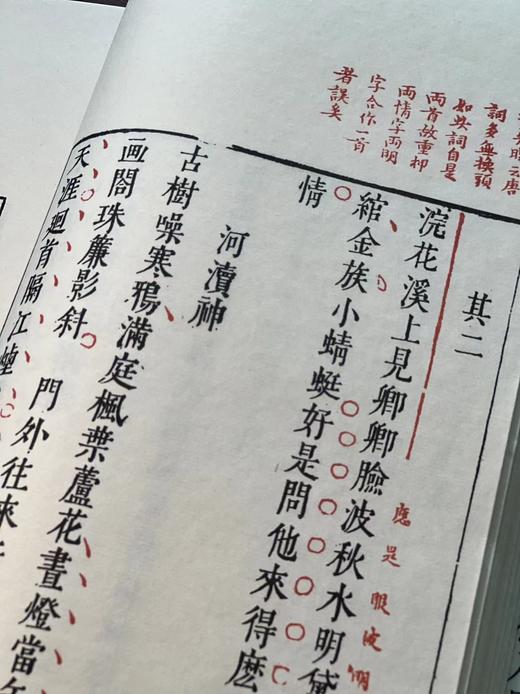 云唐
詞多無換頭
如此詞自是
兩首故重押
兩情字兩明
字合作一首
者誤矣
其二
浣花溪上見卿卿臉波秋水明黛
應是眼波明
綰金族小蜻蜓好是問他來得麼
情
河瀆神
古樹噪寒鴉滿庭楓葉蘆花晝燈當
画閣珠簾影斜 門外往來
天涯迴首隔江煙